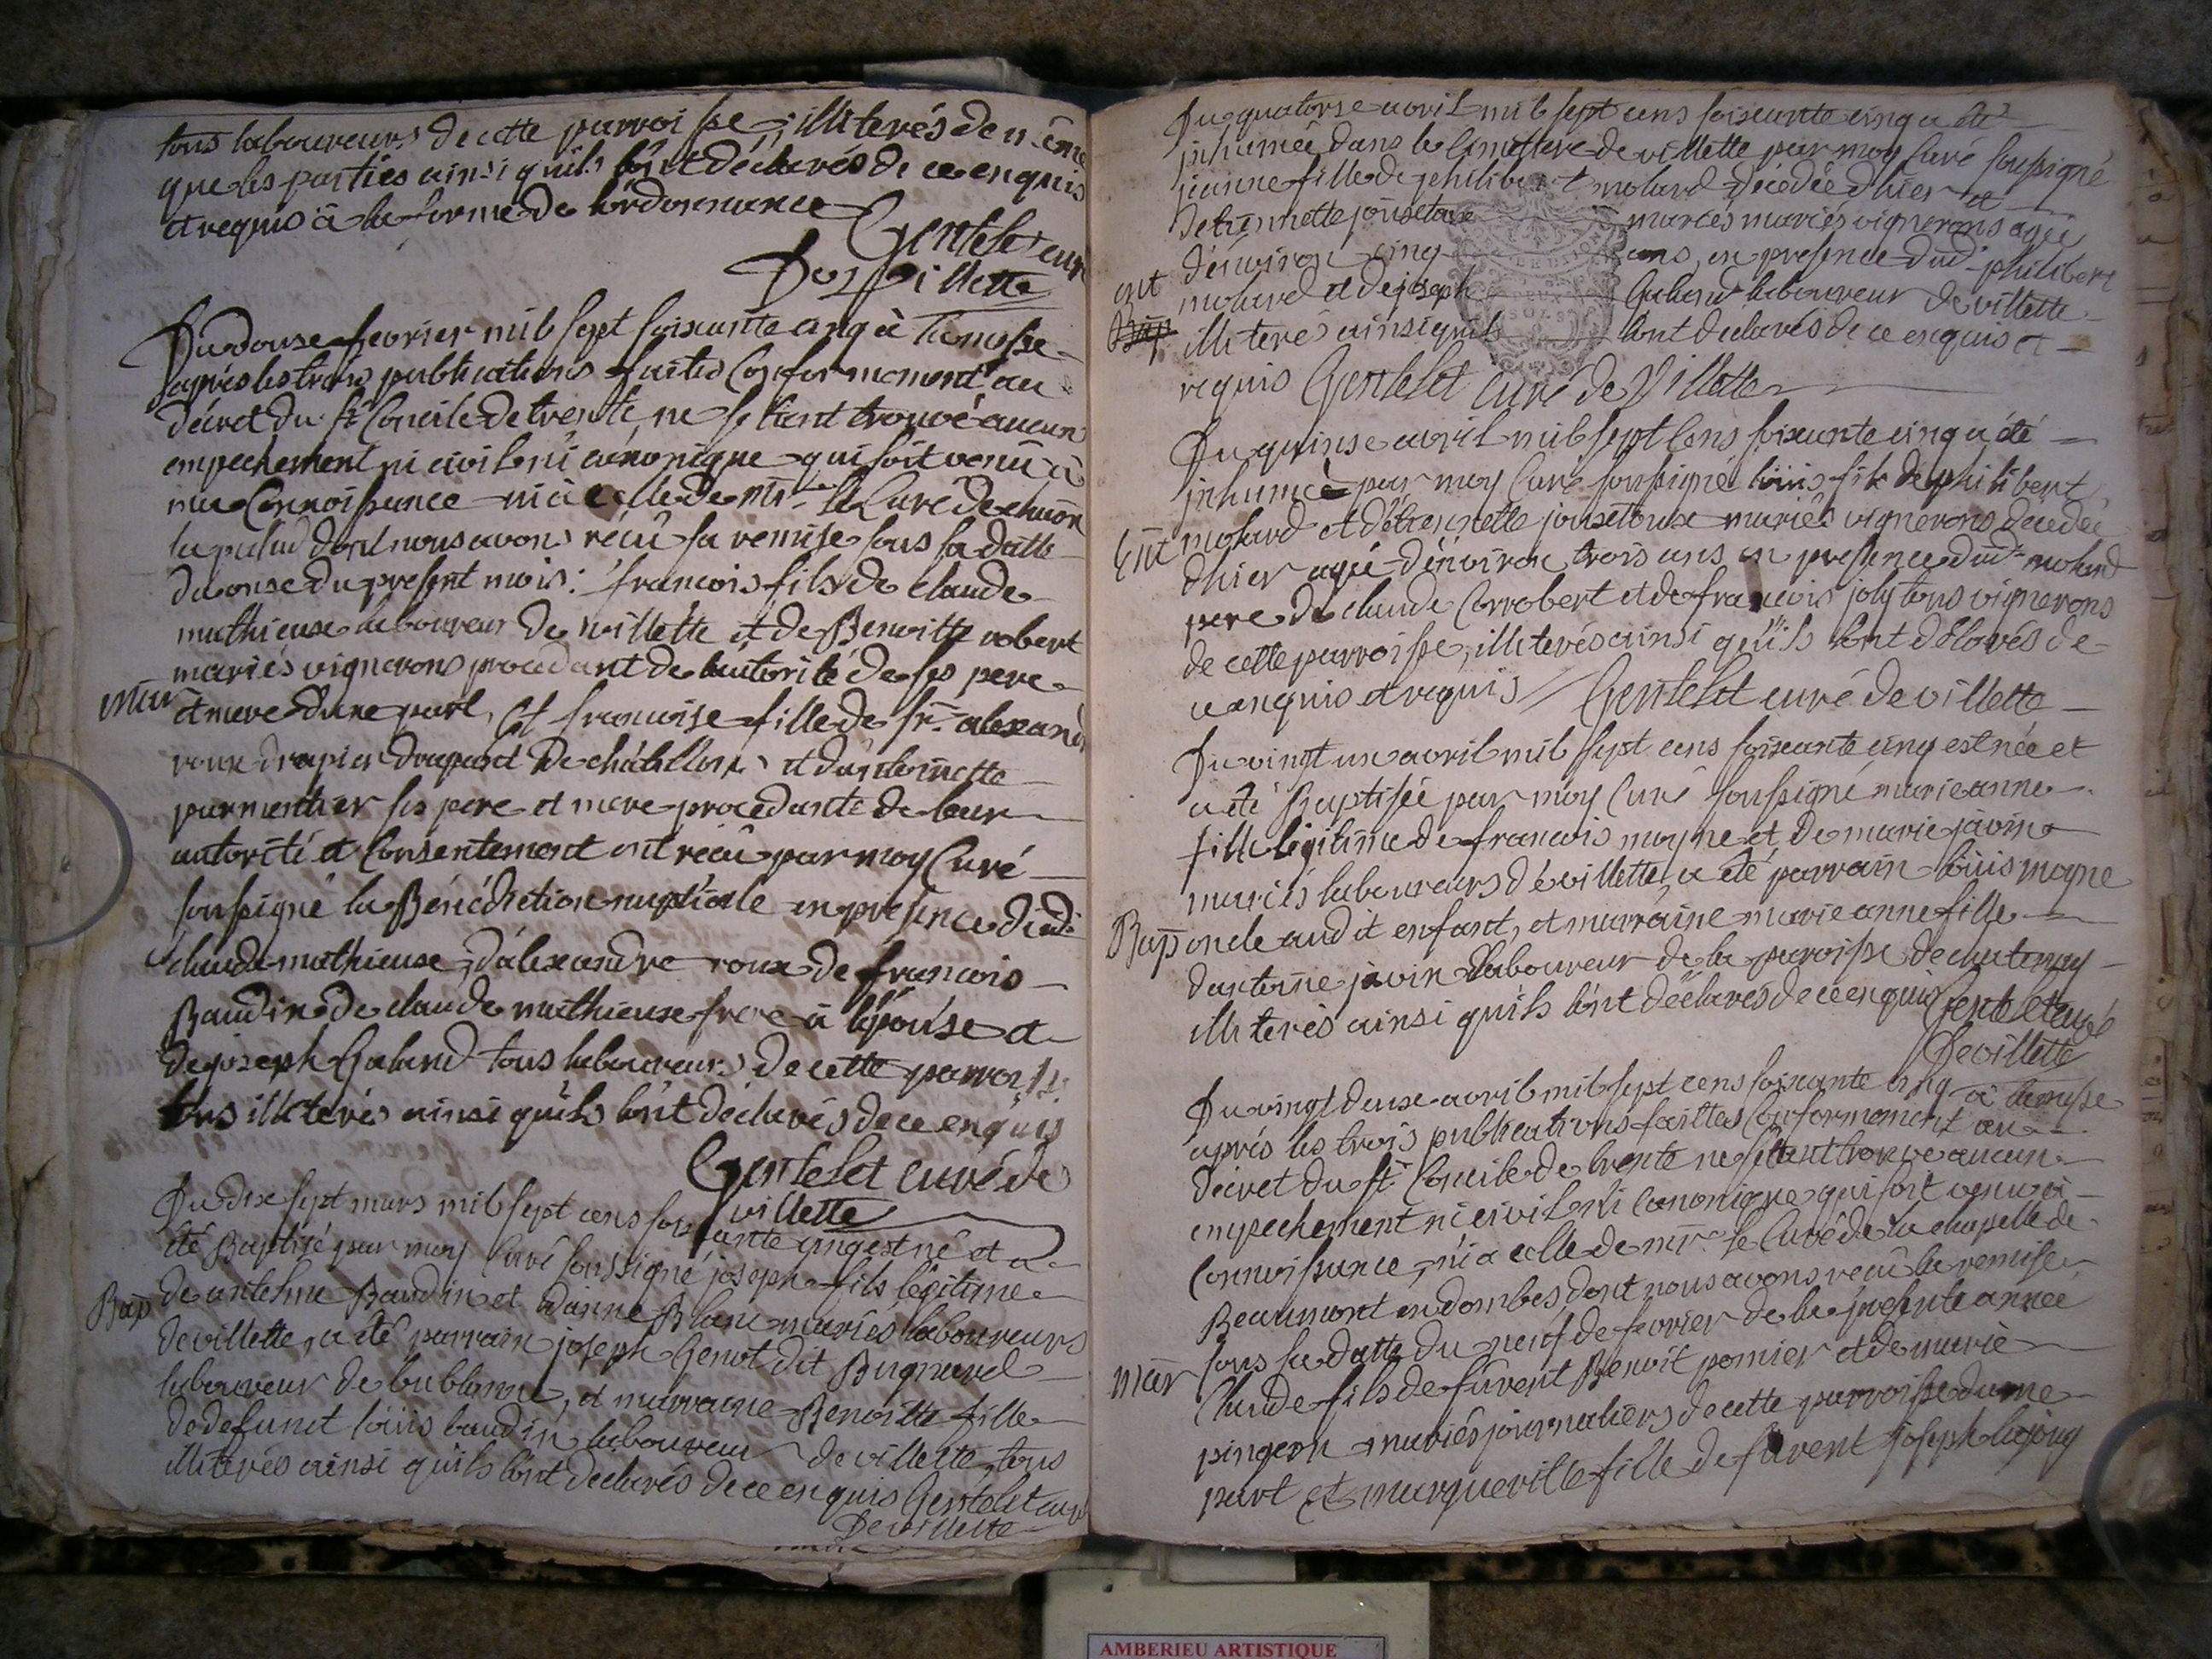 tous laboureurs de cette parroisse, illiterés de même
que les parties ainsi quils lont déclarés de ce enquis
et requis à la forme de lordonnance
Gentelet curé
De Villette
Du douse fevrier mil sept soixante cinq à la messe
aprés les trois publications faites Conformement au
décret du st Concile de trente, ne setant trouvé aucun
empechement ni civil ni canonique qui soit venu à
ma Connoissance ni à celle de mr le Curé de
la palud dont nous avons récu la remise sous sa datte
du onse du present mois: francois fils de claude
mathieuse laboureur de villette et de Benoitte robert
mariés vignerons procedant de lautorité de ses pere
mar et mere dune part, Et francoise fille de alexandre
roux drapier drapant de châtillon et dantoinette
parmentier ses pere et mere procedante de leur
autorité et Consentement ont récû par moy Curé
soussigné la Bénédiction nuptiale en presence dud.
claude mathieuse, dalexandre roux de francois
Baudin de claude mathieuse frere à lépouse et
de joseph Galand tous laboureurs de cette parroisse
tous illiterés ainsi quils lont déclarés de ce enquis
Gentelet curé de
villette
Du dix sept mars mil sept cens soixante cinq est né et a
été Baptisé par moy Curé soussigné joseph fils légitime
Bap de antelme Baudin et danne Blanc mariés laboureurs
de villette, a été parrain joseph Genot dit Bugnard
laboureur de bublanne, et marraine Benoitte fille
de defunct loüis baudin laboureur de villette, tous
illiterés ainsi quils lont declarés de ce enquis Gentelet curé
De villette
Du quatorse avril mil sept cens soixante cinq a été
inhumée dans le Cimettiere de villette par moy Curé soussigné
jeanne fille de philibert molard decédée dhier et
detiennette mariés vignerons agée
denviron cinq ans, en presence dud. philibert
ent molard et de joseph Galand laboureur de villette
Bap illiterés ainsi quils lont declarés de ce enquis et
requis Gentelet Curé de Villette
Du quinse avril mil sept Cens soixante cinq a été
inhumé par moy Curé soussigné loüis fils de philibert
molard et détiennette mariés vignerons decedé
Ent dhier agé denviron trois ans en presence dud. molard
pere de claude Corrobert et de francois joly tous vignerons
de cette parroisse, illiterés ainsi quils lont déclarés de
ce enquis et requis // Gentelet curé de villette
Du vingt un avril mil sept cens soixante cinq est née et
a été Baptisée par moy Curé soussigné marie anne
fille légitime de francois moyne et de marie javin
mariés laboureurs de villette, a été parrain loüis moyne
Bap oncle audit enfant, et marraine marie anne fille
dantoine javin laboureur de la paroisse de chatenay
illiterés ainsi quils lont declarés de ce enquis Gentelet curé
De villette
Du vingt deux avril mil sept cens soixante cinq à la messe
aprés les trois publications faittes Conformement au
décret du st. Concile de trente ne setant trouvé aucun
empechement ni civil ni Canonique qui soit venu à
Connoissance, ni a celle de mr. le Curé de la chapelle de
Beaumont en dombes dont nous avons recû la remise
sous sa datte du neuf de fevrier de la presente année
mar Claude fils de furent Benoit pomier et de marie
pingeon mariés journaliers de cette parroisse dune
part et marguerille fille de furent joseph
AMBERIEU ARTISTIQUE